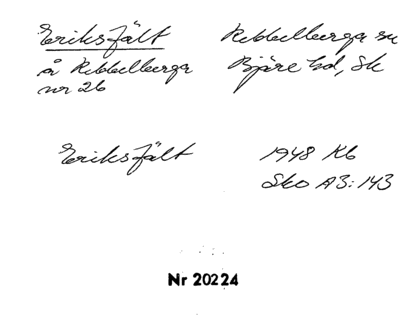 Eriksfält
å Rebbelberga
nr 26
Rebbelberga sn
Bjäre hd, Sk
Eriksfält
1948 Kb
Sko A3:143
Nr 20224